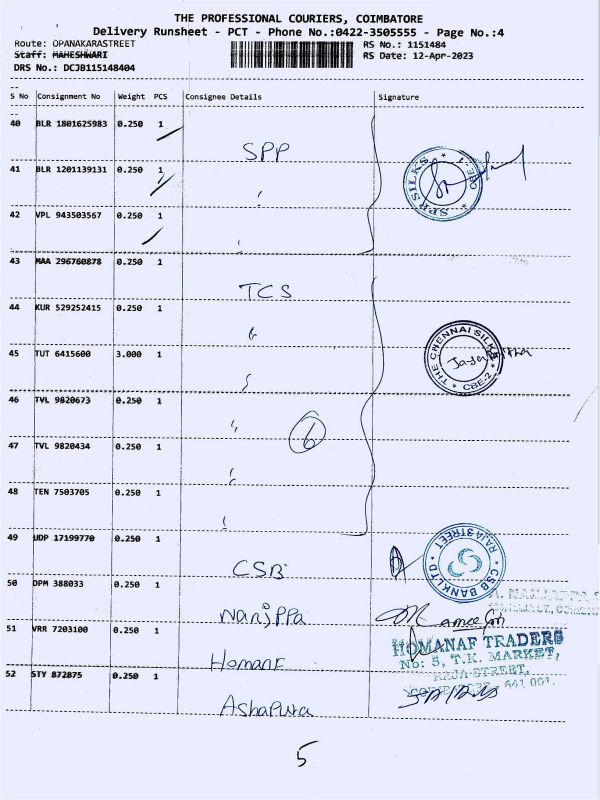 THE PROFESSIONAL COURIERS, COIMBATORE
Delivery Runsheet - PCT - Phone No.:0422-3505555 - Page No.:4
Route: OPANAKARASTREET RS No.: 1151484
Staff: MAHESHWARI RS Date: 12-Apr-2023
DRS No.: DCJB115148404
S No Consignment No Weight PCS Consignee Details Signature
40 BLR 1801625983 0.250 1
SPP
41 BLR 1201139131 0.250 1
SPP SILKS
42 VPL 943503567 0.250 1
43 MAA 296760878 0.250 1
TCS
44 KUR 529252415 0.250 1
45 TUT 6415600 3.000 1
THE CHENNAI SILKS
CBE-2
46 TVL 9820673 0.250 1
6
47 TVL 9820434 0.250 1
48 TEN 7503705 0.250 1
49 UDP 17199770 0.250 1
CSB
CSB BANK LTD
RAJA STREET
50 DPM 388033 0.250 1
Nanjppa
51 VRR 7203100 0.250 1
Homane
HOMANAF TRADERS
No: 5, T.K. MARKET,
RAJA STREET,
641 001.
52 STY 872875 0.250 1
Ashapura
5